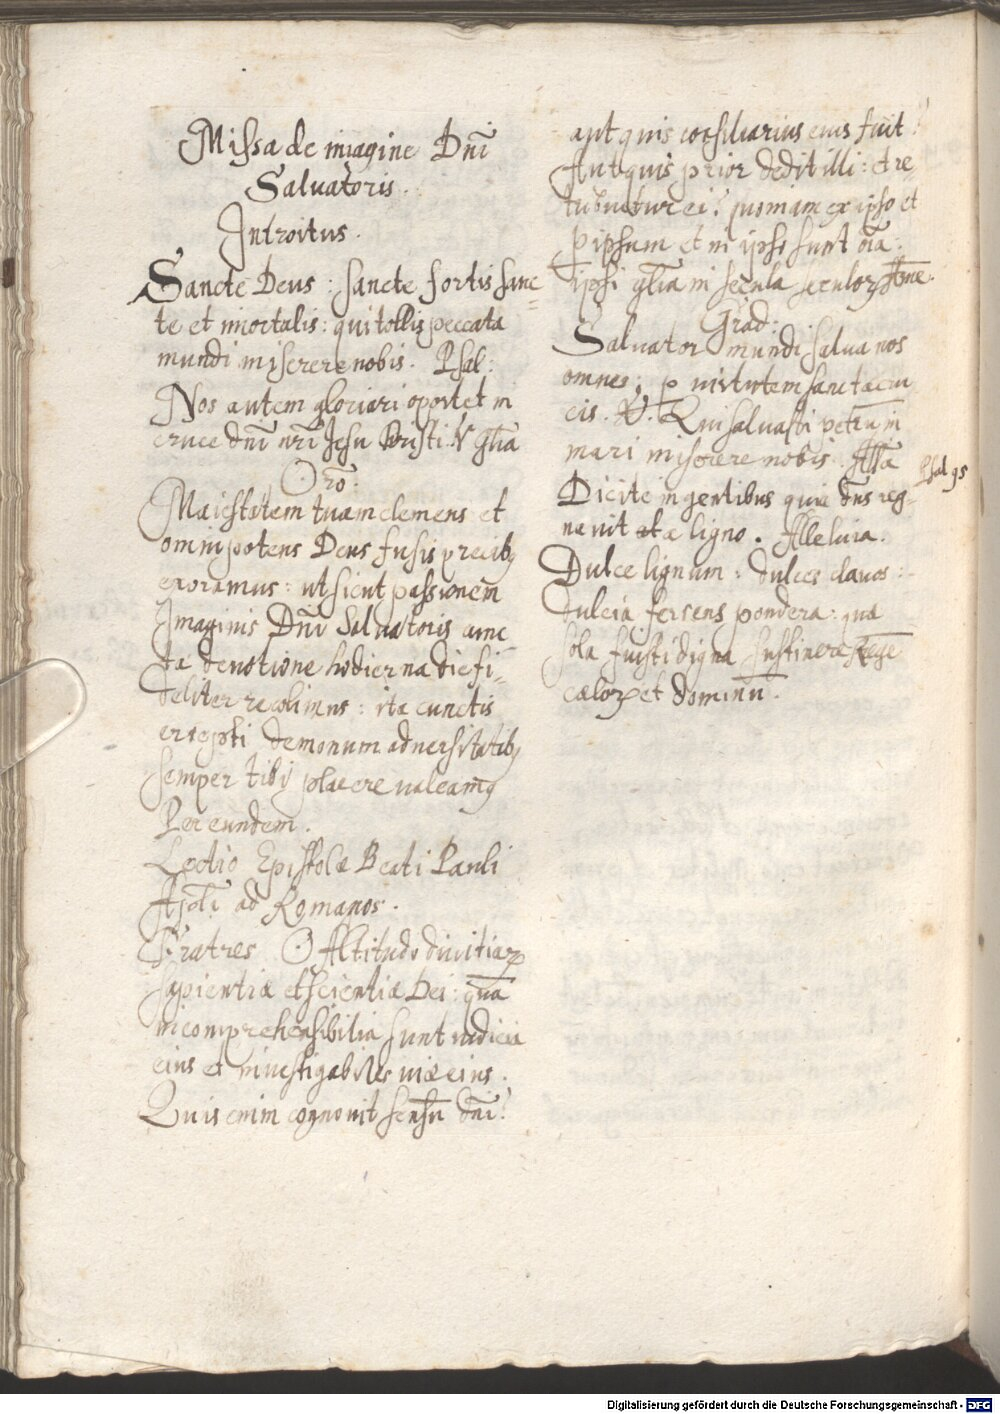 Missa de imagine Dn̄i
Saluatoris.
Introitus.
Sancte Deus : sancte fortis sanc=
te et im̄ortalis : qui tollis peccata
mundi miserere nobis. Psal:
Nos autem gloriari oportet in
cruce dn̄i nr̄i Jesu Christi. V Gl̄ia
Orō.
Maiestatem tuam clemens et
omnipotens Deus fusis precibꝫ
exoramus : ut sicut passionem
Imaginis Dn̄i Saluatoris
ta deuotione hodierna die fi=
deliter recolimus : ita cunctis
erepti demonum aduersitatibꝫ
semper tibi placere ualeamꝰ
Per eundem.
Lectio Epistolæ Beati Pauli
Apl̄i ad Romanos.
Fratres O Altitudo diuitiaꝝ
sapientiæ et scientiæ Dei : quā
incomprehensibilia sunt iudicia
eius et inuestigabiles uiæ eius.
Quis enim cognouit sensū dn̄i?
aut quis consiliarius eius fuit?
Aut quis prior dedit illi : et re=
tribuetur ei? quoniam ex ipso et
ꝑ ipsum et in ipso sunt oīa :
ipsi gl̄ia in secula seculoꝝ Am̄e.
Grad:
Saluator mundi salua nos
omnes : ꝑ uirtutem sanctæ cru
cis. V. Qui saluasti petrū in
mari miserere nobis. All̄a
Psal 95
Dicite in gentibus quia dn̄s reg=
nauit a ligno. Alleluia.
Dulce lignum : dulces clauos :
dulcia ferens pondera : quæ
sola fuisti digna sustinere Rege
cæloꝝ et dominū.
Digitalisierung gefördert durch die Deutsche Forschungsgemeinschaft - DFG